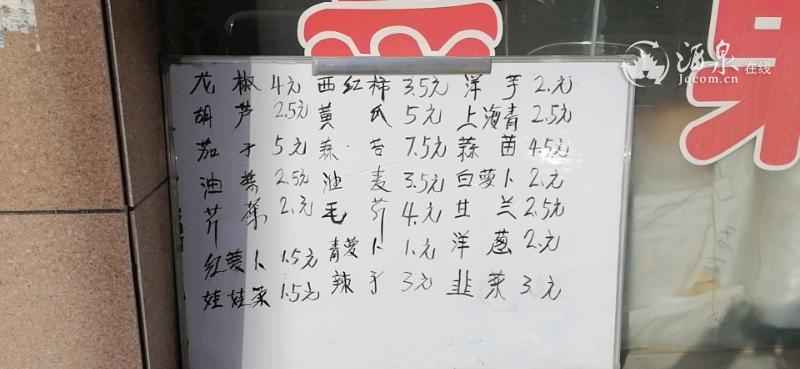 酒泉在线
Jqcom.cn
龙椒 4元 西红柿 3.5元 洋芋 2.元
胡芦 2.5元 黄瓜 5元 上海青 2.5元
茄子 5元 蒜苔 7.5元 蒜苗 4.5元
油菜 2.5元 油麦 3.5元 白萝卜 2.元
芹菜 2.元 毛芹 4.元 甘兰 2.5元
红萝卜 1.5元 青萝卜 1.元 洋葱 2.元
娃娃菜 1.5元 辣子 3元 韭菜 3元